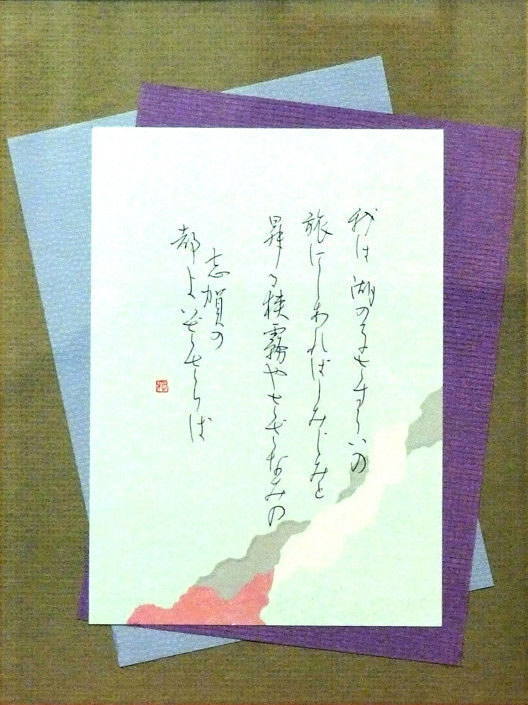 我は湖の子さすらいの
旅にしあればしみじみと
昇る狭霧やさざなみの
志賀の
都よいざさらば